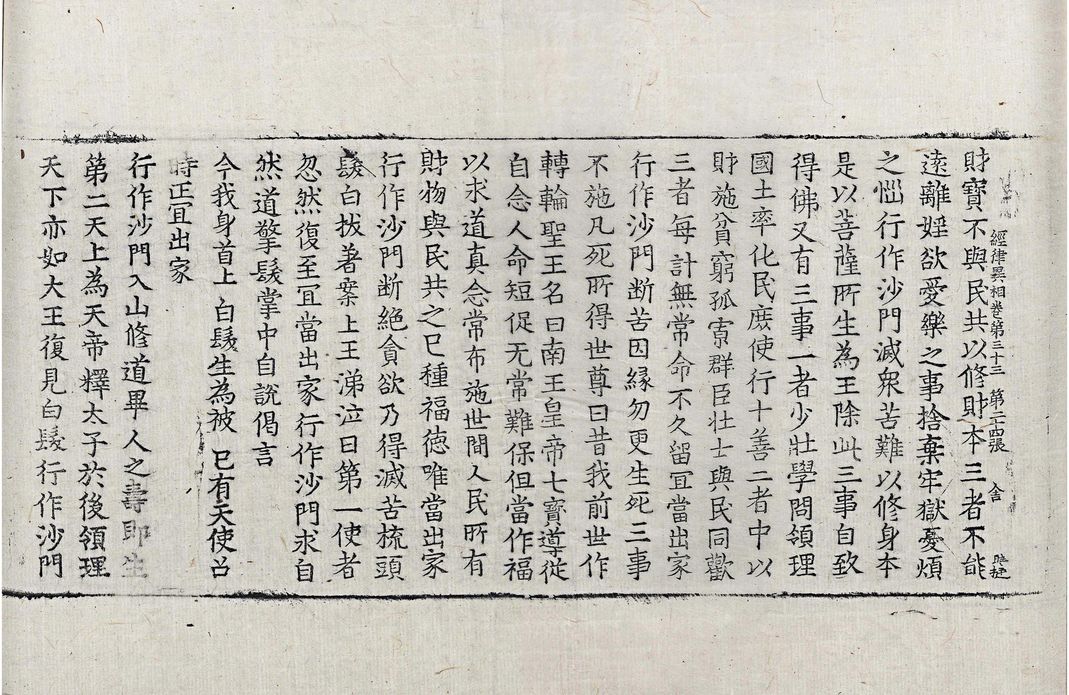 經律異相卷第三十三 第二十四張 舍
財寶不與民共以修財本三者不能
遠離婬欲愛樂之事捨棄牢獄憂煩
之惱行作沙門滅衆苦難以修身本
是以菩薩所生為王除此三事自致
得佛又有三事一者少壯學問領理
國土率化民庶使行十善二者中以
財施貧窮孤寡群臣壯士與民同歡
三者每計無常命不久留冝當出家
行作沙門断苦因緣勿更生死三事
不施凡死所得世尊曰昔我前世作
轉輪聖王名曰南王皇帝七寶導從
自念人命短促无常難保但當作福
以求道真念常布施世間人民所有
財物與民共之已種福德唯當出家
行作沙門断絶貪欲乃得滅苦梳頭
髮白拔著案上王涕泣曰第一使者
忽然復至冝當出家行作沙門求自
然道擎髮掌中自說偈言
今我身首上 白髮生為被 已有天使召
時正冝出家
行作沙門入山修道畢人之壽即生
第二天上為天帝釋太子於後領理
天下亦如大王復見白髮行作沙門